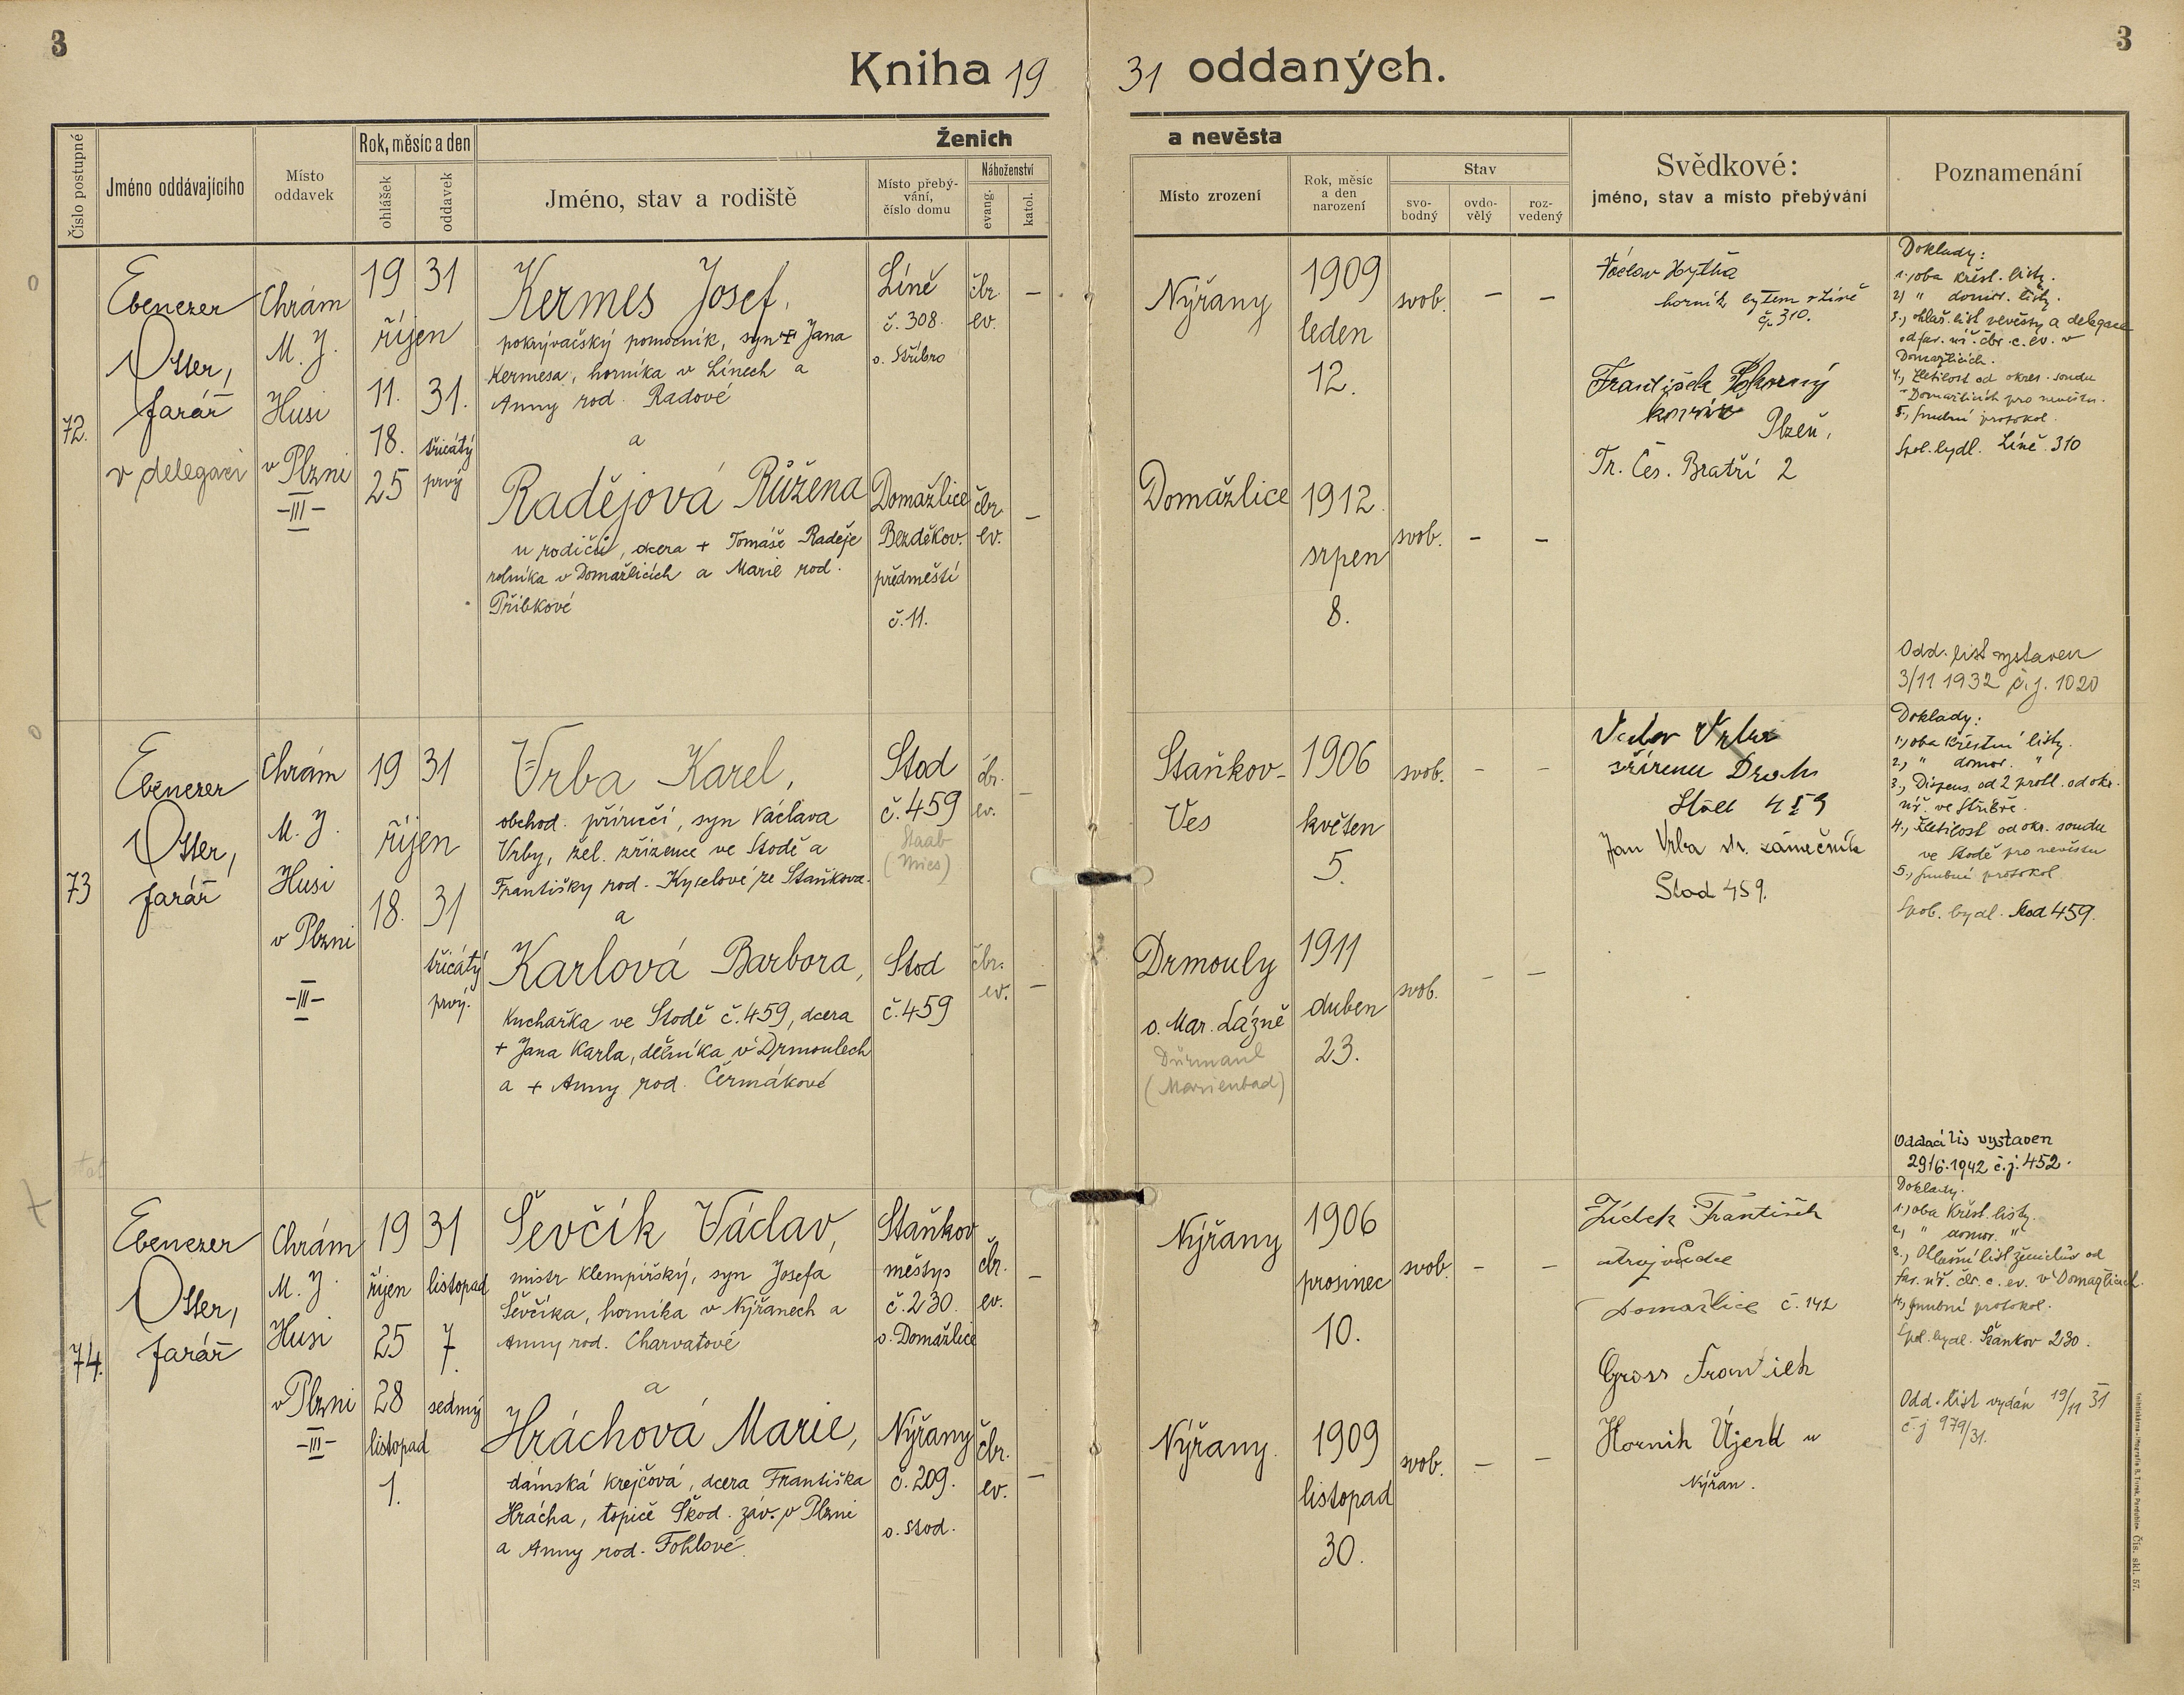 3
3
Kniha 19 31 oddaných.
Číslo postupné
Jméno oddávajícího
Místo oddavek
Rok, měsíc a den
ohlášek
oddavek
Ženich
a nevěsta
Jméno, stav a rodiště
Místo přebý-
vání,
číslo domu
Náboženství
evang.
katol.
Místo zrození
Rok, měsíc
a den
narození
Stav
svo-
bodný
ovdo-
vělý
roz-
vedený
Svědkové:
jméno, stav a místo přebývání
Poznamenání
72.
Ebenezer
Otter,
farář
v delegaci
Chrám
M. J.
Husi
v Plzni
-III-
19 31
říjen
11. 31.
18. třicátý
25 prvý
Kermes Josef,
pokrývačský pomocník, syn + Jana
Kermesa, horníka v Línech a
Anny rod. Radové
a
Radějová Růžena
u rodičů, dcera + Tomáše Raděje
rolníka v Domažlicích a Marie rod.
Přibkové
Líně
č. 308.
o. Stříbro
čbr.
ev.
–
Domažlice
Bezděkov.
předměstí
č. 11.
čbr.
ev.
–
Nýřany
1909
leden
12.
svob. – –
Domažlice
1912
srpen
8.
svob. – –
Václav Hytha
horník bytem v Líně
č. 310.
František
Plzeň,
Tr. Čes. Bratří 2
Doklady:
1., oba křest. listy.
2) " domov. listy.
3., ohláš. list nevěsty a delegace
od far. úř. čbr. c. ev. v
Domažlicích.
4., Zletilost od okres. soudu
v Domažlicích pro nevěstu.
5., snubní protokol.
Spol. bydl. Líně 310
Odd. list vystaven
3/11 1932 č. j. 1020
73
Ebenezer
Otter,
farář
Chrám
M. J.
Husi
v Plzni
-III-
19 31
říjen
18. 31
třicátý
prvý.
Vrba Karel,
obchod. příručí, syn Václava
Vrby, žel. zřízence ve Stodě a
Františky rod. Kyselové ze Staňkova.
a
Karlová Barbora,
Kuchařka ve Stodě č. 459, dcera
+ Jana Karla, dělníka v Drmoulech
a + Anny rod. Čermákové
Stod
č. 459
Staab
(Mies)
čbr.
ev.
–
Stod
č. 459
čbr.
ev.
–
Staňkov-
Ves
1906
květen
5.
svob. – –
Drmouly
o. Mar. Lázně
Dürmaul
(Marienbad)
1911
duben
23.
svob. – –
Vrba
Drah
Stod 459
Jan Vrba zámečník
Stod 459.
Doklady:
1., oba křestní listy.
2., " domov. "
3., Dispens. od 2 prohl. od okr.
úř. ve Stříbře.
4., Zletilost od okr. soudu
ve Stodě pro nevěstu
5., snubní protokol.
Spol. bydl. Stod 459.
Oddací lis vystaven
29/6.1942 č. j. 452.
74.
Ebenezer
Otter,
farář
Chrám
M. J.
Husi
v Plzni
-III-
19 31
říjen listopad
25 7.
28 sedmý
listopad
1.
Ševčík Václav,
mistr klempířský, syn Josefa
Ševčíka, horníka v Nýřanech a
Anny rod. Charvatové
a
Hráchová Marie,
dámská krejčová, dcera Františka
Hrácha, topiče Škod. záv. v Plzni
a Anny rod. Fohlové.
Staňkov
městys
č. 230.
o. Domažlice
čbr.
ev.
–
Nýřany
č. 209.
o. Stod.
čbr.
ev.
–
Nýřany
1906
prosinec
10.
svob. – –
Nýřany.
1909
listopad
30.
svob. – –
Žídek František
strojvůdce
Domažlice č. 142
Gross František
Horník Újezd u
Nýřan.
Doklady.
1., oba křest. listy.
2, " domov. "
3., Ohlašní list ženichův od
far. úř. čbr. c. ev. v Domažlicích.
4., snubní protokol.
Spol. bydl. Staňkov 230.
Odd. list vydán 19/11 31
č. j 979/31.
Čís. skl. 57.